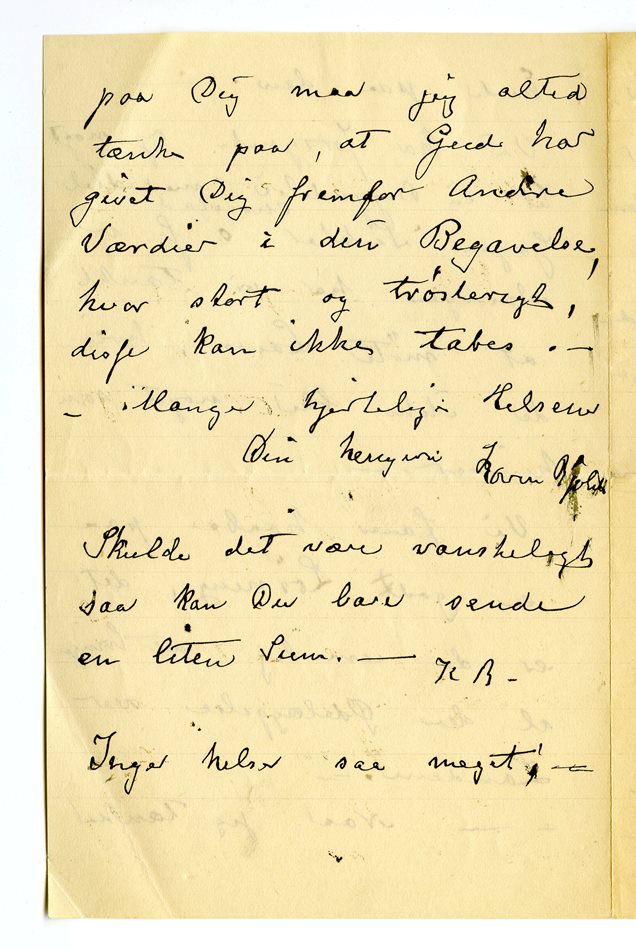 paa Dig maa jeg altid
tænke paa, at Gud har
givet Dig fremfor Andre
Værdier i den Begavelse,
hvor stort og trøsterigt,
disse kan ikke tabes. —
– Mange hjertelige Helsener
Din hengivne Karen
Skulde det være vanskeligt
saa kan Du bare sende
en liten Sum. — K B –
Inger helser saa meget! —